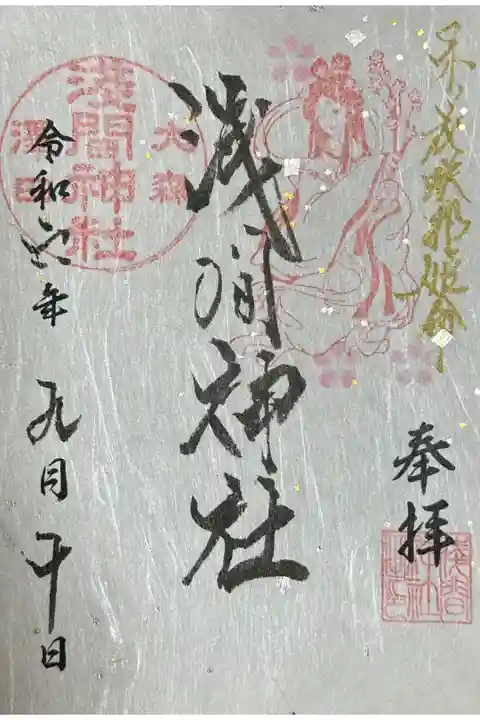 木之花咲耶姫命
奉拝
浅間神社
大森
淺間神社
澤田
令和六年
九月十日